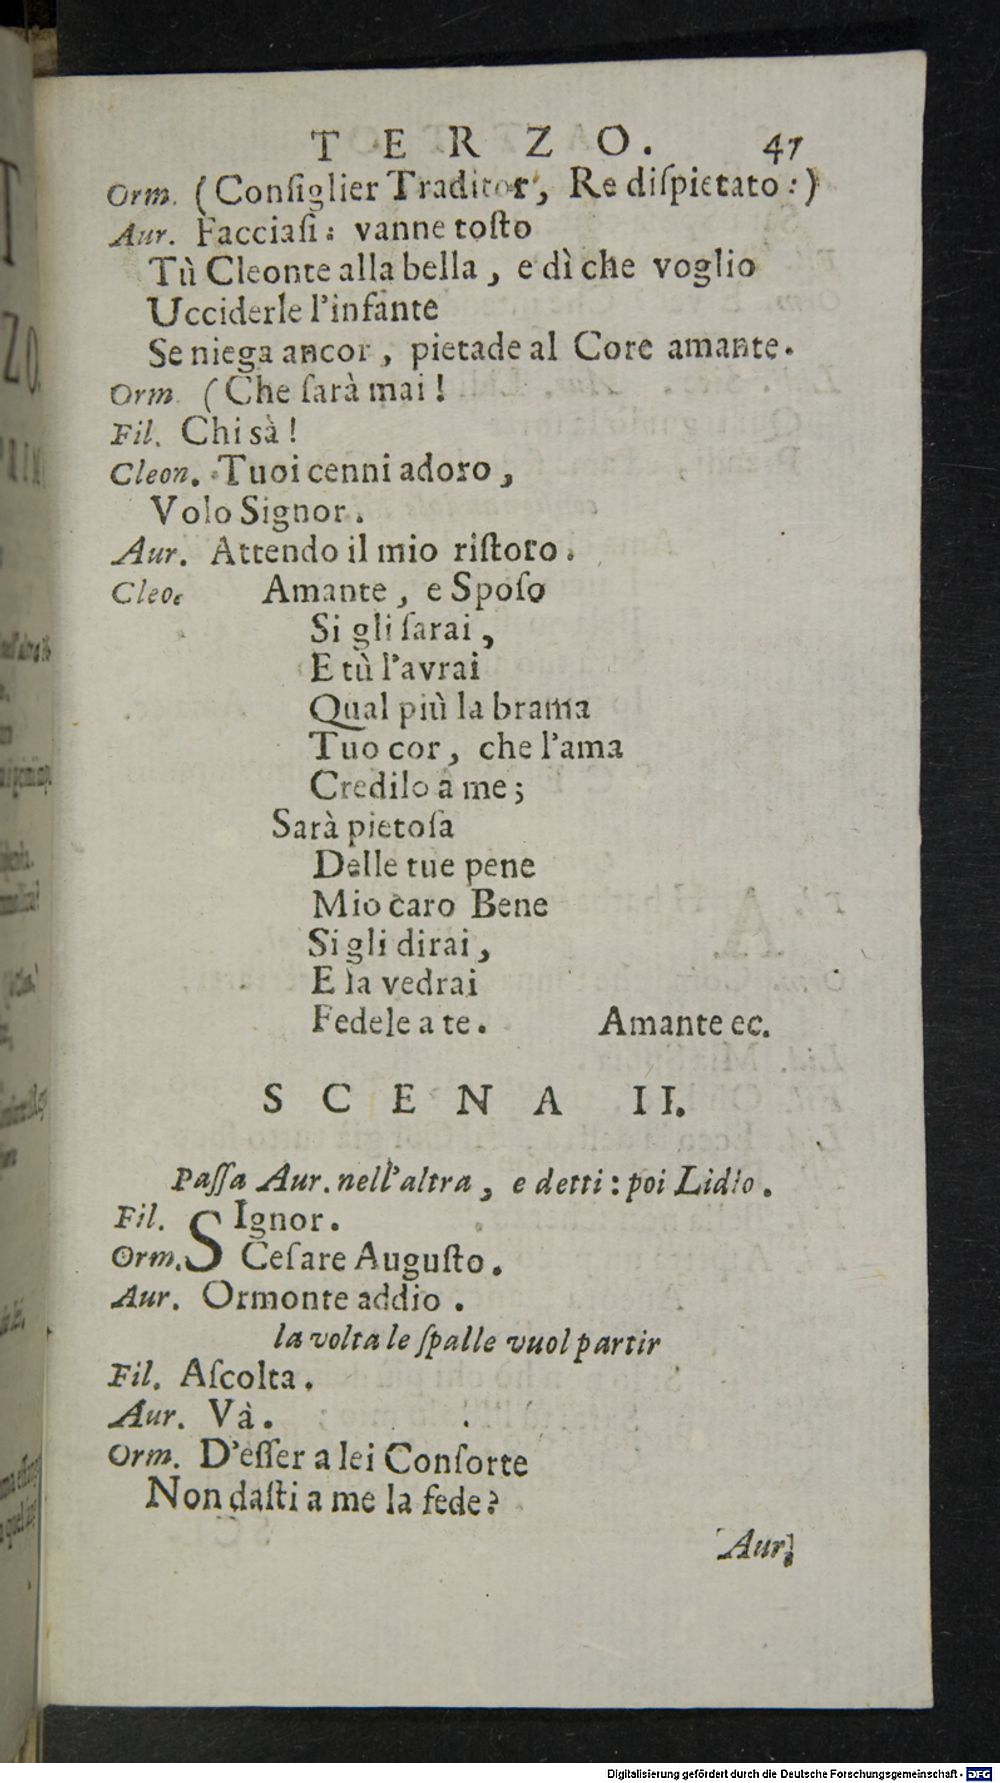 TERZO. 47
Orm. (Conſiglier Traditor, Re diſpietato:)
Aur. Facciaſi: vanne toſto
Tù Cleonte alla bella, e dì che voglio
Ucciderle l'infante
Se niega ancor, pietade al Core amante.
Orm. (Che ſarà mai!
Fil. Chi sà!
Cleon. Tuoi cenni adoro,
Volo Signor.
Aur. Attendo il mio riſtoro.
Cleo. Amante, e Spoſo
Si gli ſarai,
E tù l'avrai
Qual più la brama
Tuo cor, che l'ama
Credilo à me;
Sarà pietoſa
Delle tue pene
Mio caro Bene
Si gli dirai,
E la vedrai
Fedele a te. Amante ec.
SCENA II.
Paſſa Aur. nell'altra, e detti: poi Lidio.
Fil. SIgnor.
Orm. Ceſare Auguſto.
Aur. Ormonte addio.
la volta le ſpalle vuol partir
Fil. Aſcolta.
Aur. Và.
Orm. D'eſſer a lei Conſorte
Non daſti a me la fede?
Aur.
Digitalisierung gefördert durch die Deutsche Forschungsgemeinschaft - DFG